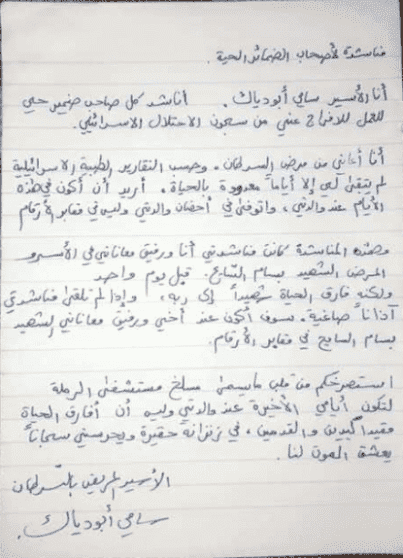 مناشدة لأصحاب الضمائر الحية.
أنا الأسير سامي أبودياك. أناشد كل صاحب ضمير حي
للعمل للافراج عني من سجون الاحتلال الاسرائيلي.
أنا أعاني من مرض السرطان. وحسب التقارير الطبية الاسرائيلية
لم يتبقى لي إلا أياماً معدودة بالحياة. أريد أن أكون في هذه
الأيام عند والدتي، واتوفى في أحضان والدتي وليس في مقابر الأرقام
وهذه المناشدة كانت مناشدتي أنا ورفيق معاناتي في الأسر و
المرض الشهيد بسام السايح. قبل يوم واحد
ولكنه فارق الحياة شهيداً إلى ربه، وإذا لم تلقى مناشدتي
آذاناً صاغية. سوف أكون عند أخي ورفيق معاناتي الشهيد
بسام السايح في مقابر الأرقام.
استصرخكم من قلب ما يسمى مسلخ مستشفى الرملة
لتكون أيامي الأخيرة عند والدتي وليس أن أفارق الحياة
مقيد اليدين والقدمين، في زنزانة حقيرة ويحرسني سجاناً
يعشق الموت لنا.
الأسير المريض بالسرطان
سامي أبودياك.